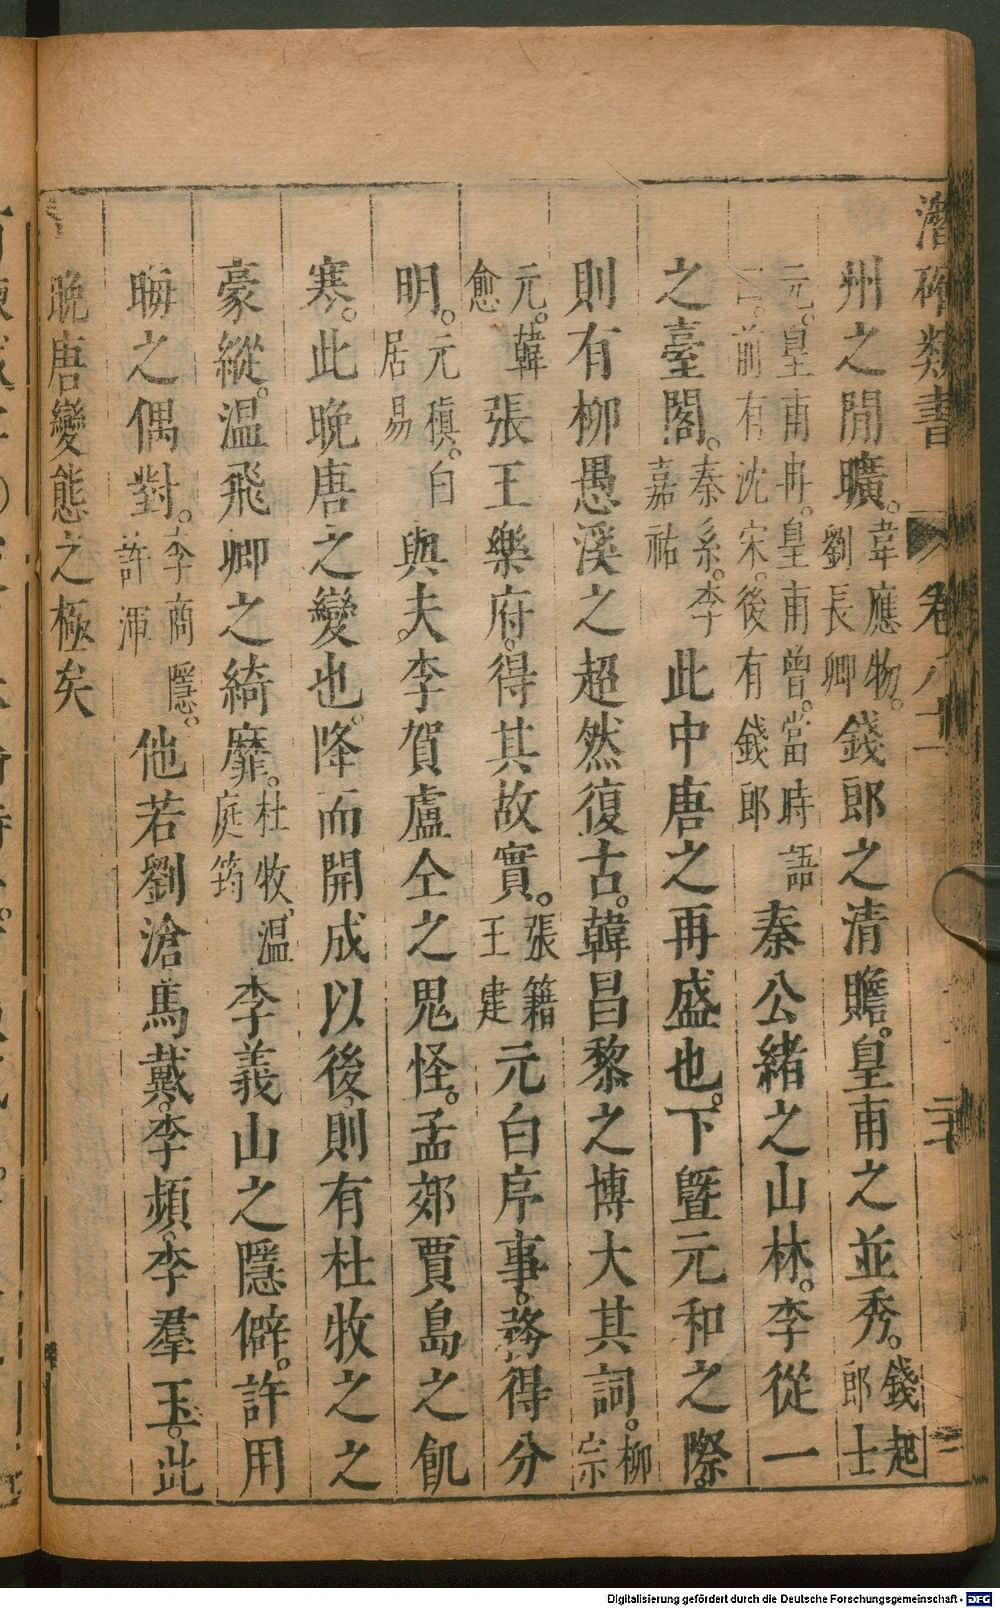 潛確類書 卷八十一
州之閒曠。韋應物。劉長卿錢郎之清贍。皇甫之並秀。錢起郎士
元。皇甫冉。皇甫曾。當時語曰。前有沈宋。後有錢郎秦公緒之山林。李從一
之臺閣。秦系。李嘉祐此中唐之再盛也。下暨元和之際。
則有柳愚溪之超然復古。韓昌黎之博大其詞。柳宗
元。韓愈張王樂府。得其故實。張籍王建元白序事。務得分
明。元稹。白居易與夫。李賀盧仝之鬼怪。孟郊賈島之飢
寒。此晚唐之變也。降而開成以後。則有杜牧之之
豪縱。溫飛卿之綺靡。杜牧。溫庭筠李義山之隱僻。許用
晦之偶對。李商隱。許渾他若劉滄馬戴。李頻。李羣玉。此
晚唐變態之極矣
Digitalisierung gefördert durch die Deutsche Forschungsgemeinschaft - DFG